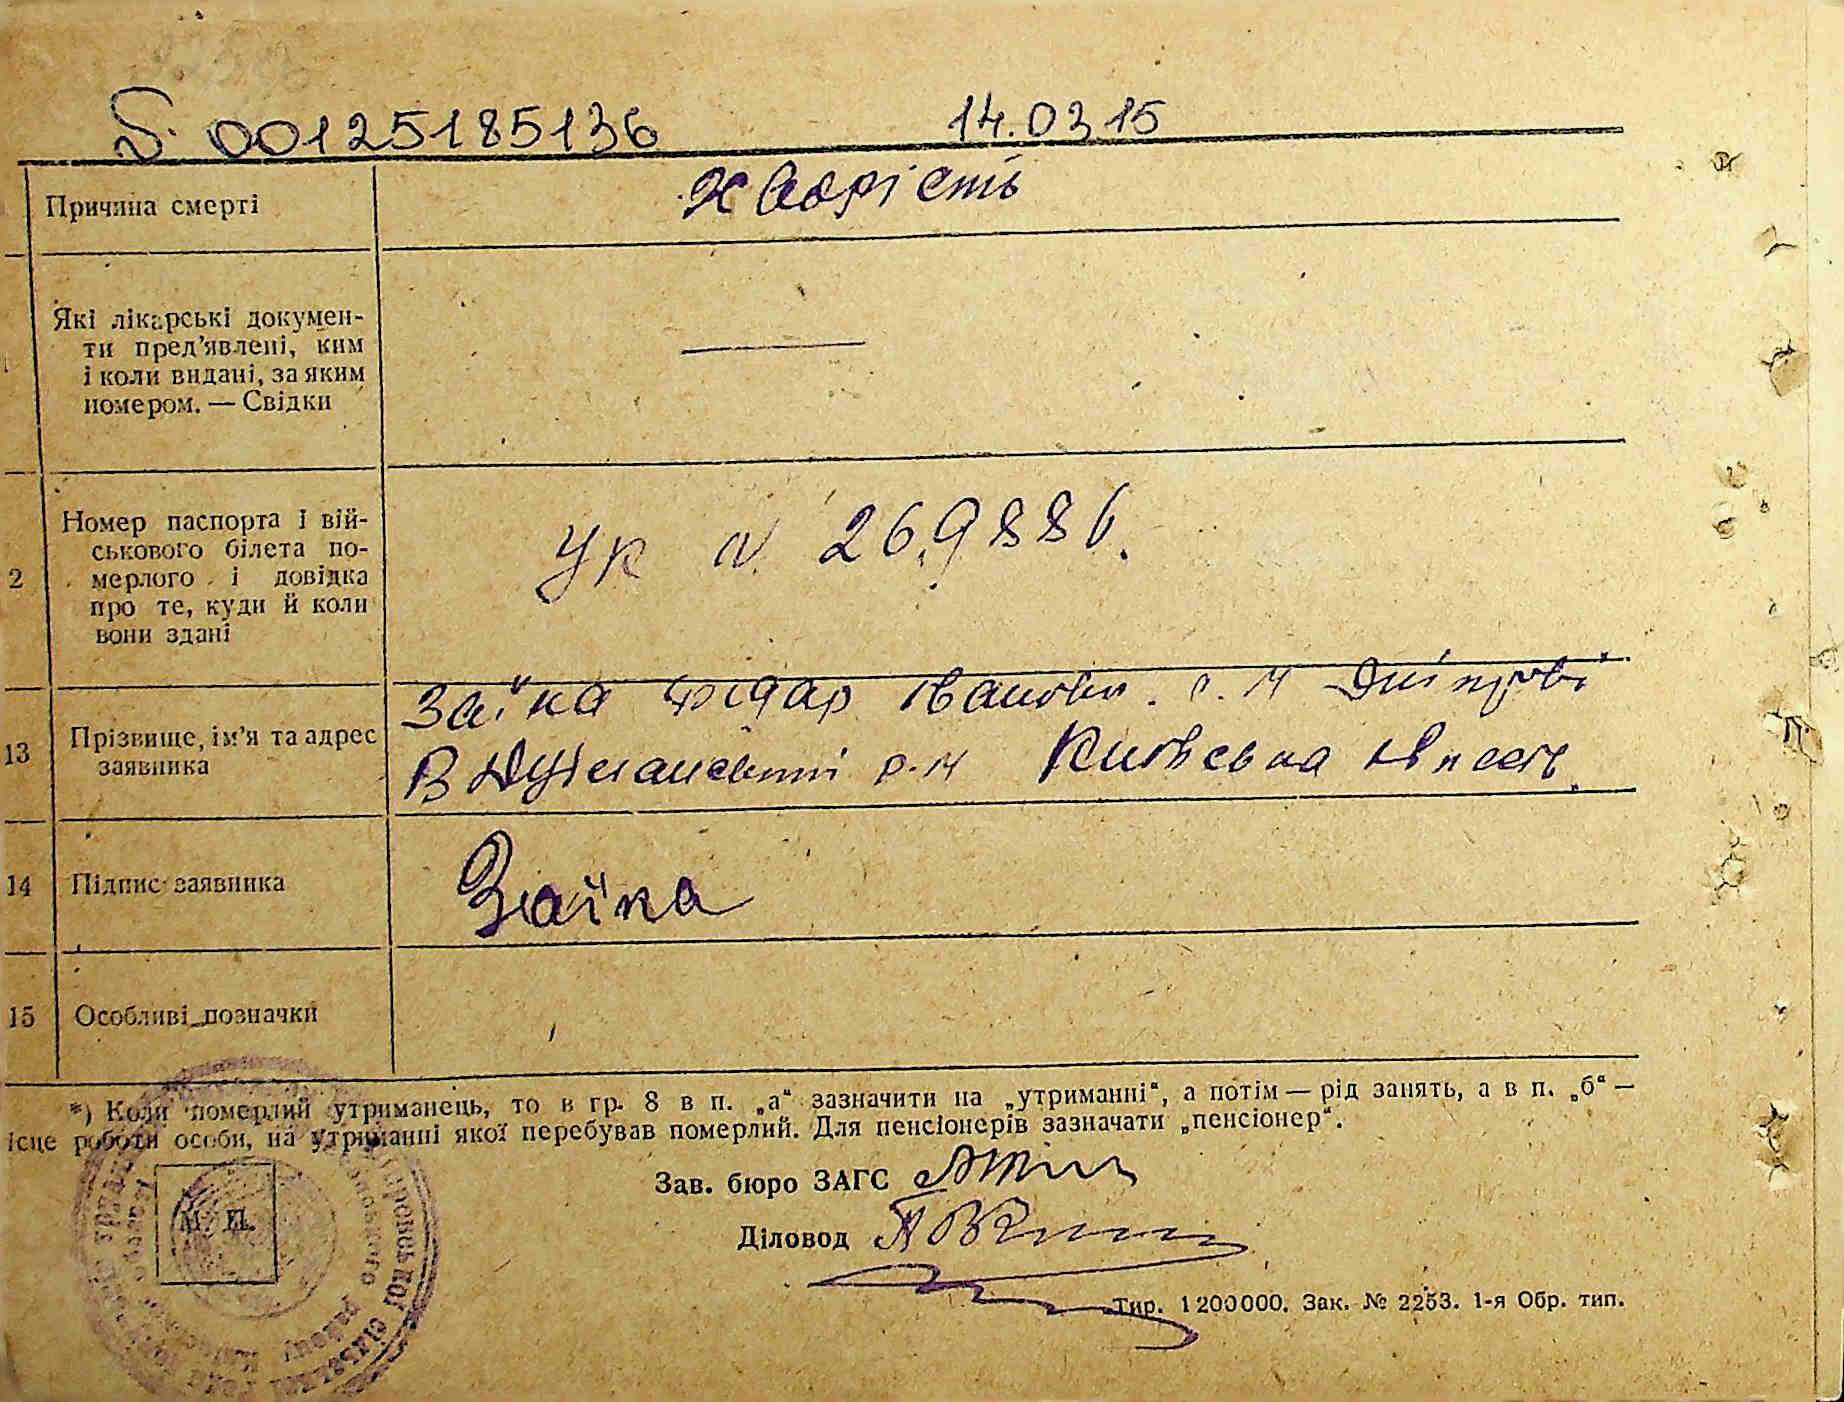 S. 00125185136 14.03 15
Причина смерті хворість
Які лікарські докумен-
ти пред'явлені, ким
і коли видані, за яким
номером. — Свідки
—
Номер паспорта і вій-
ськового білета по-
2 мерлого і довідка
про те, куди й коли
вони здані
УК N 269886.
13 Прізвище, ім'я та адрес
заявника
Заїка Іванович
р-н Київська
14 Підпис заявника Заїка
15 Особливі позначки
*) Коли померлий утриманець, то в гр. 8 в п. „а“ зазначити на „утриманні“, а потім — рід занять, а в п. „б“ —
ісце роботи особи, на утриманні якої перебував померлий. Для пенсіонерів зазначати „пенсіонер“.
Зав. бюро ЗАГС
М. П.
Діловод
Тир. 1200000. Зак. № 2253. 1-я Обр. тип.